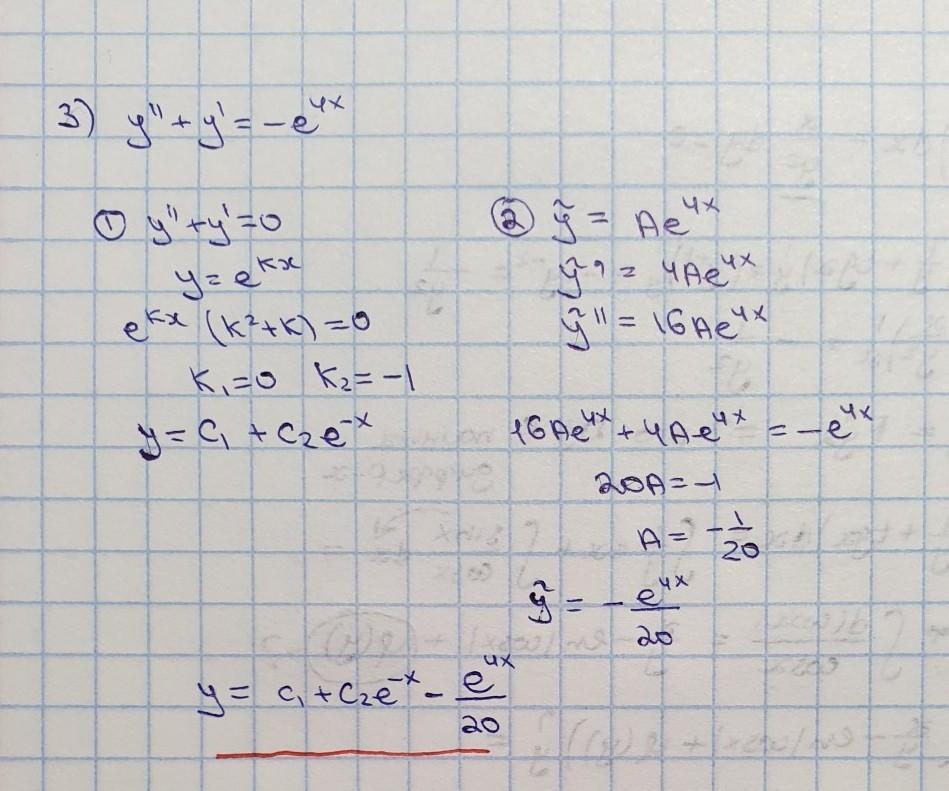 3) y'' + y' = -e^{4x}
① y'' + y' = 0
y = e^{kx}
e^{kx} (k² + k) = 0
k₁ = 0 k₂ = -1
y = C₁ + C₂e^{-x}
② ỹ = Ae^{4x}
ỹ' = 4Ae^{4x}
ỹ'' = 16Ae^{4x}
16Ae^{4x} + 4Ae^{4x} = -e^{4x}
20A = -1
A = -\frac{1}{20}
ỹ = -\frac{e^{4x}}{20}
y = C₁ + C₂e^{-x} - \frac{e^{4x}}{20}